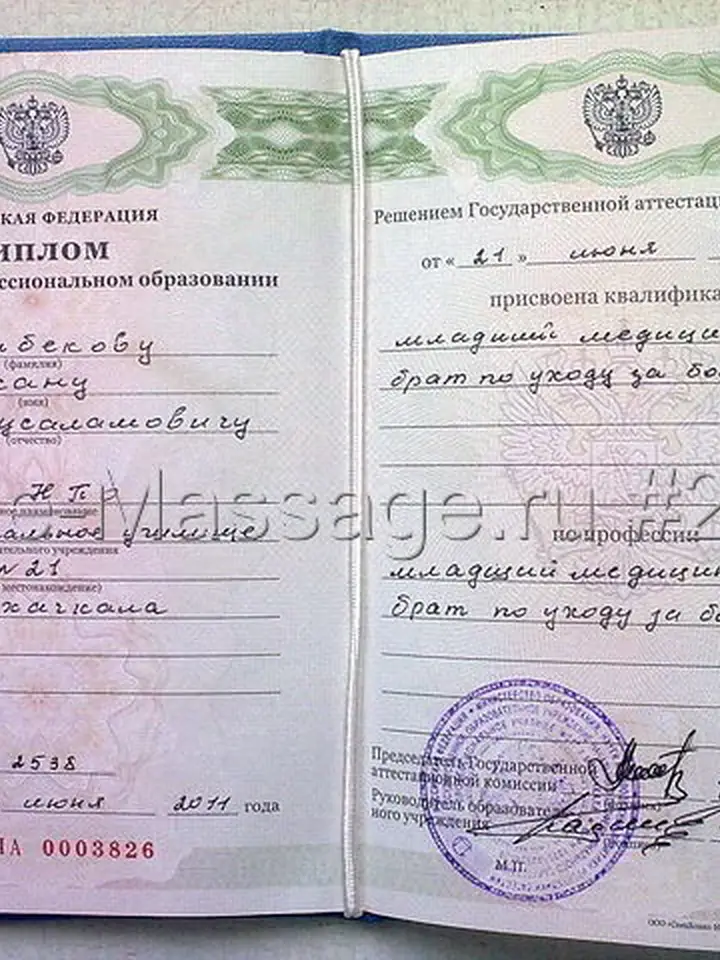 КАЯ ФЕДЕРАЦИЯ
ИПЛОМ
ссиональном образовании
бекову
(фамилия)
сану
(имя)
усаламовичу
(отчество)
НПО
альное училище
ательного учреждения
№21
местонахождение)
хачкала
2538
июня 2011 года
НА 0003826
Решением Государственной аттестац
от « 21 » июня
присвоена квалифика
младший медици
брат по уходу за бо
Massage.ru #2
по профессии
младший медицин
брат по уходу за бо
Председатель Государственной
аттестационной комиссии
Руководитель образовател
ного учреждения
М.П.